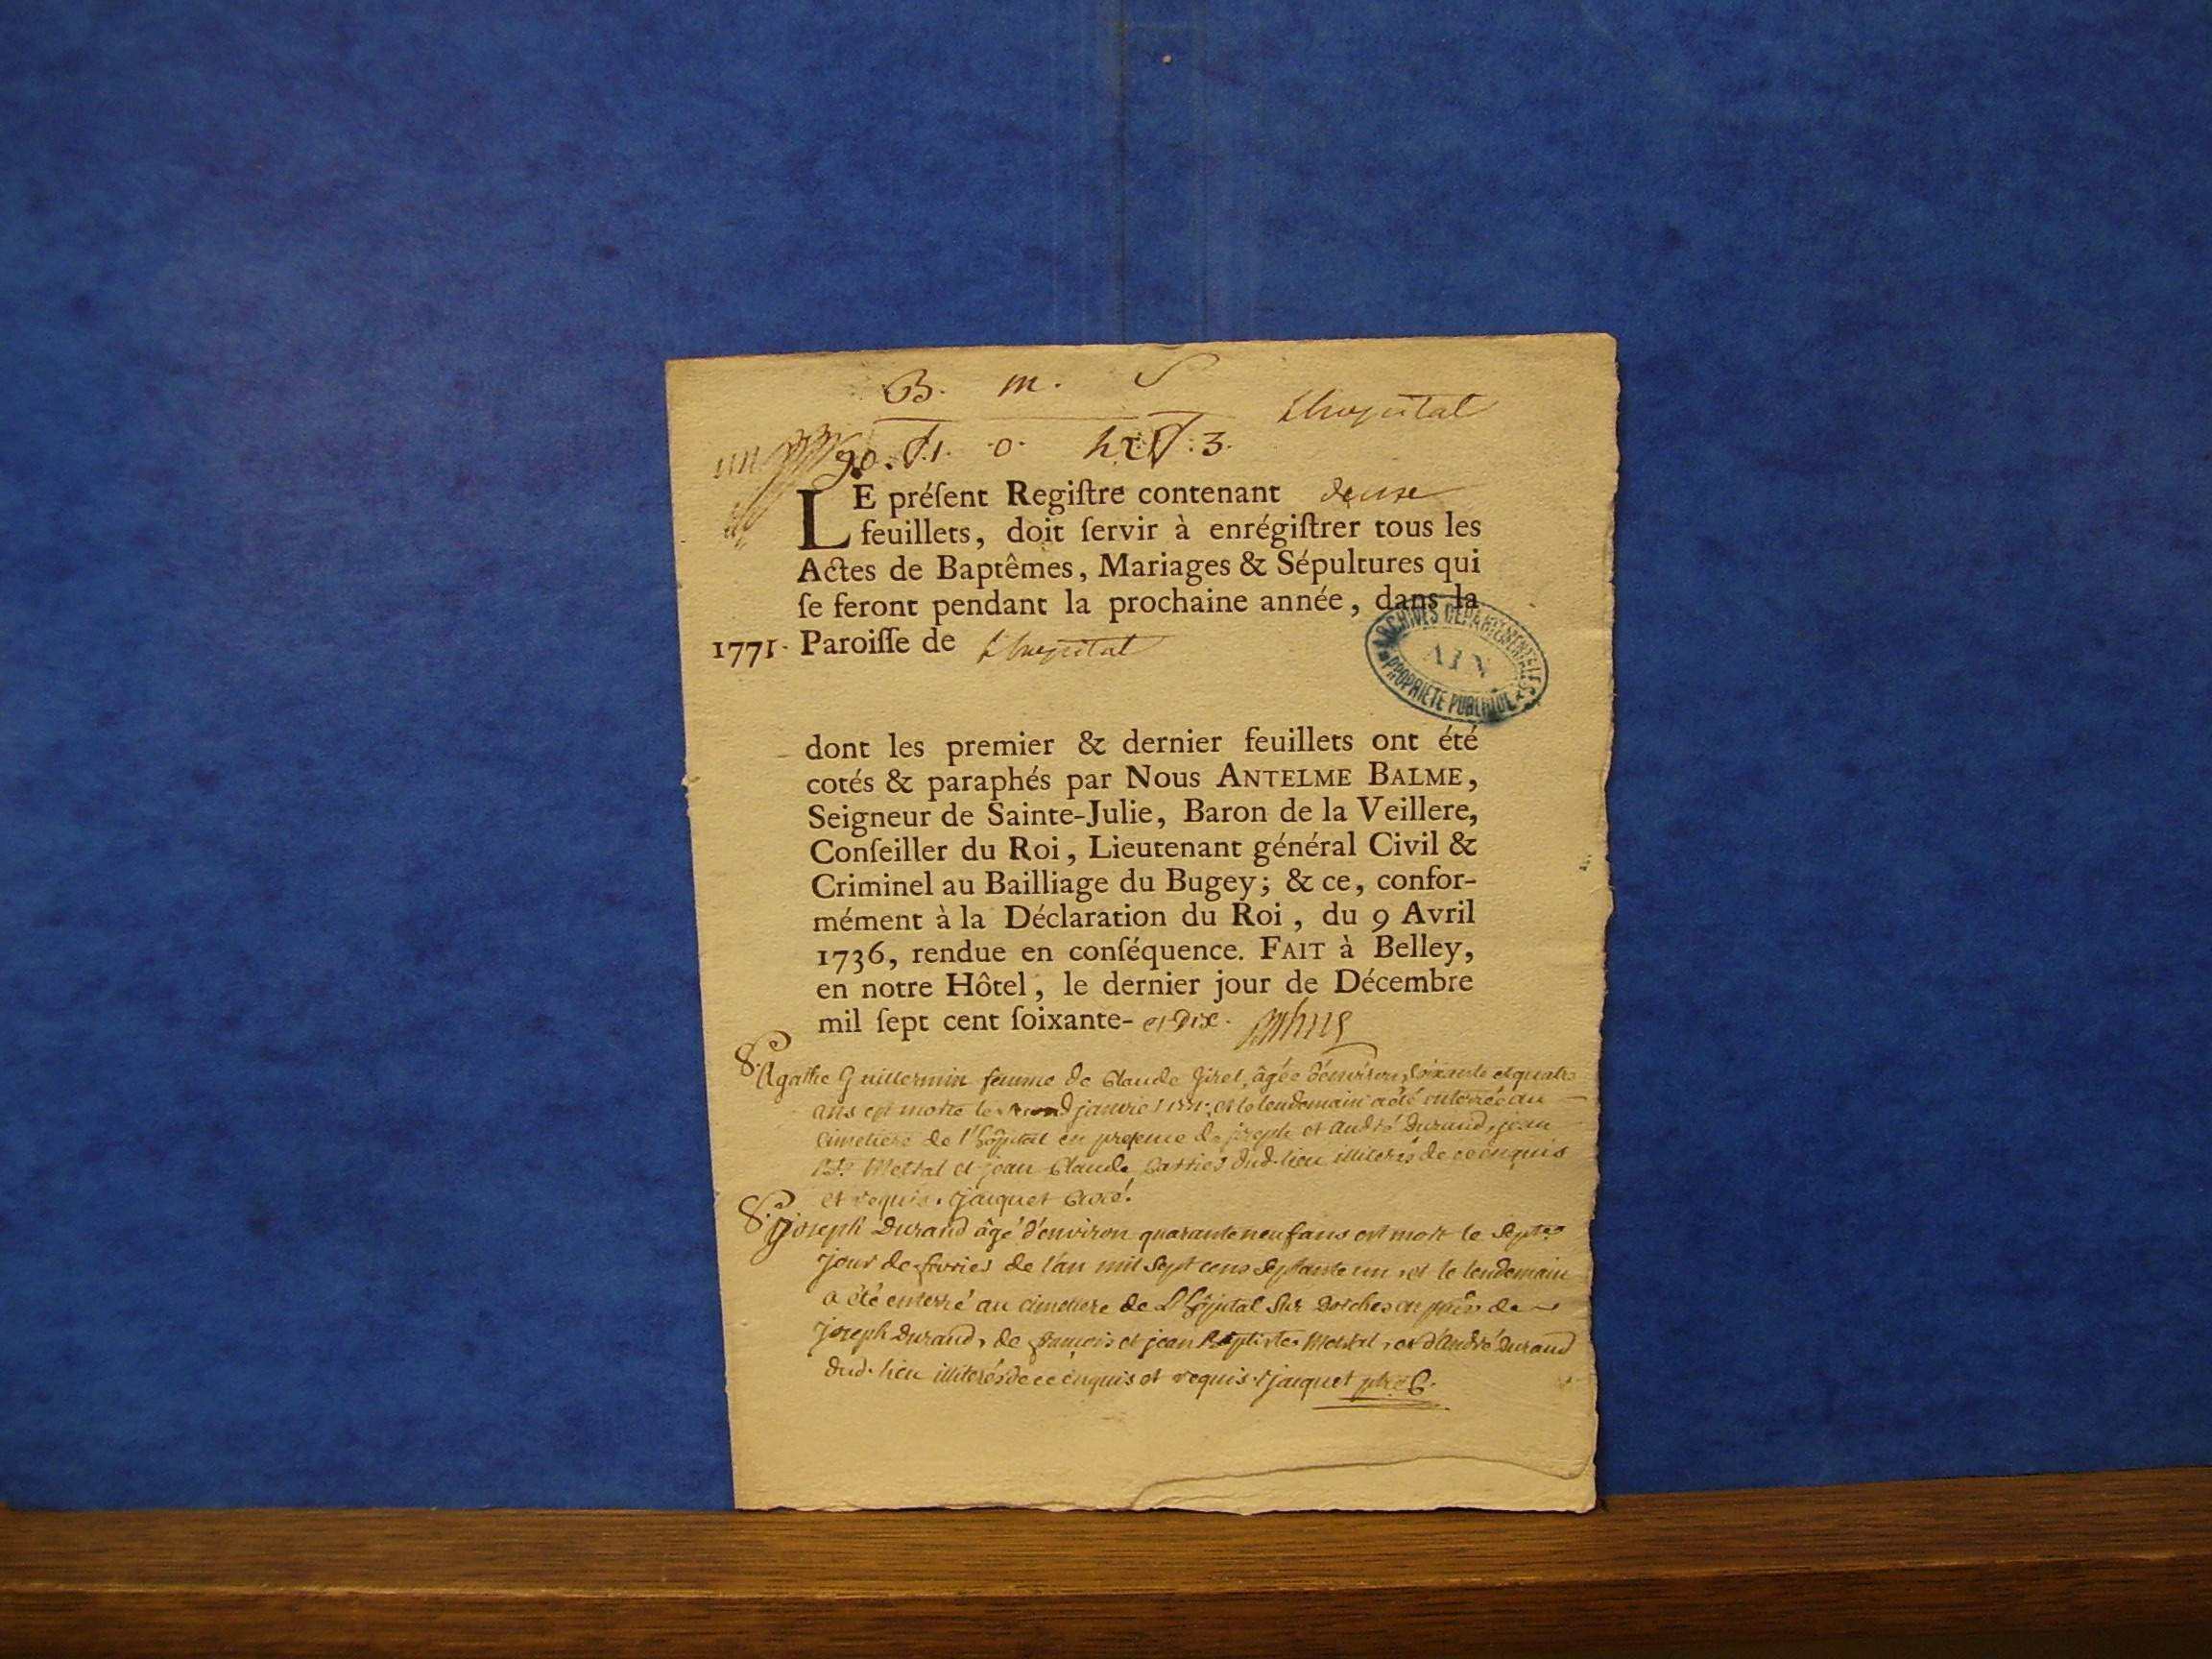 B. m. S
Lhopital
un
90. f.1. 0. 3.
LE préſent Regiſtre contenant deux
feuillets, doit ſervir à enrégiſtrer tous les
Actes de Baptêmes, Mariages & Sépultures qui
ſe feront pendant la prochaine année, dans la
1771. Paroiſſe de Lhopital
ARCHIVES DEPARTEMENTALES
AIN
PROPRIETE PUBLIQUE
dont les premier & dernier feuillets ont été
cotés & paraphés par Nous ANTELME BALME,
Seigneur de Sainte-Julie, Baron de la Veillere,
Conſeiller du Roi, Lieutenant général Civil &
Criminel au Bailliage du Bugey; & ce, confor-
mément à la Déclaration du Roi, du 9 Avril
1736, rendue en conſéquence. FAIT à Belley,
en notre Hôtel, le dernier jour de Décembre
mil ſept cent ſoixante- et dix.
S. Agathe Guillermin femme de Claude Giret, âgée d'environ soixante et quatre
ans est morte le second janvier 1771, et le lendemain a été enterrée au
cimetiere de l'hôpital en presence de joseph et andré Durand, jean
Bte. et jean Claude dud. lieu illiterés de ce enquis
et requis. jacquet Curé.
S. joseph Durand âgé d'environ quarante neuf ans est mort le sept.
jour de fevrier de l'an mil sept cens septante un, et le lendemain
a été enterré au cimetiere de L'hôpital sur Dorches en pnce de
joseph Durand, de françois et jean Baptiste, et d'andré Durand
dud. lieu illiterés de ce enquis et requis. jacquet ptre C.